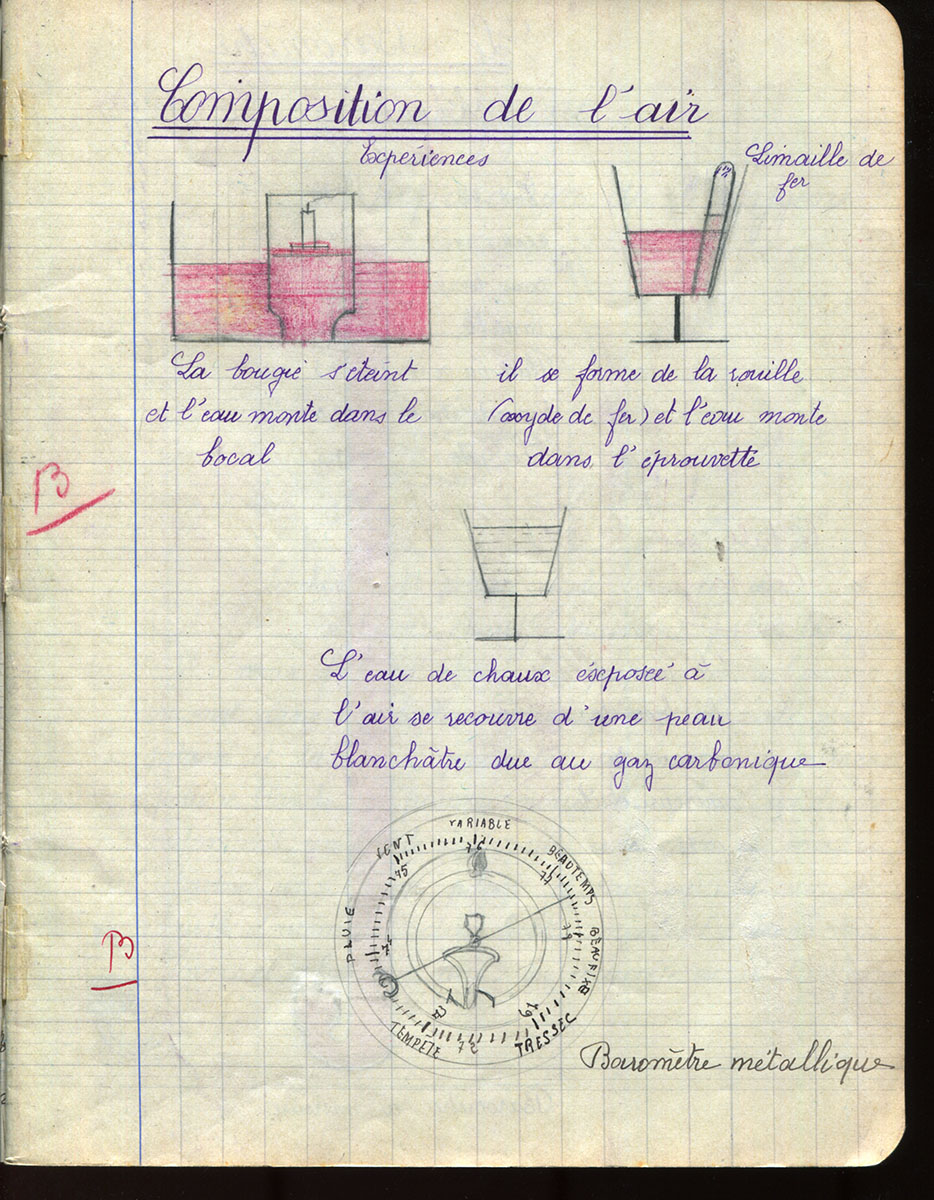 Composition de l'air
Expériences
Limaille de
fer
La bougie s'éteint
et l'eau monte dans le
bocal
il se forme de la rouille
(oxyde de fer) et l'eau monte
dans l'éprouvette
B
L'eau de chaux éxposée à
l'air se recouvre d'une peau
blanchâtre due au gaz carbonique
B
VARIABLE
VENT
BEAUTEMPS
PLUIE
BEAUFIXE
TEMPÊTE
TRESSEC
76
75
77
74
78
73
72
79
Baromètre métallique